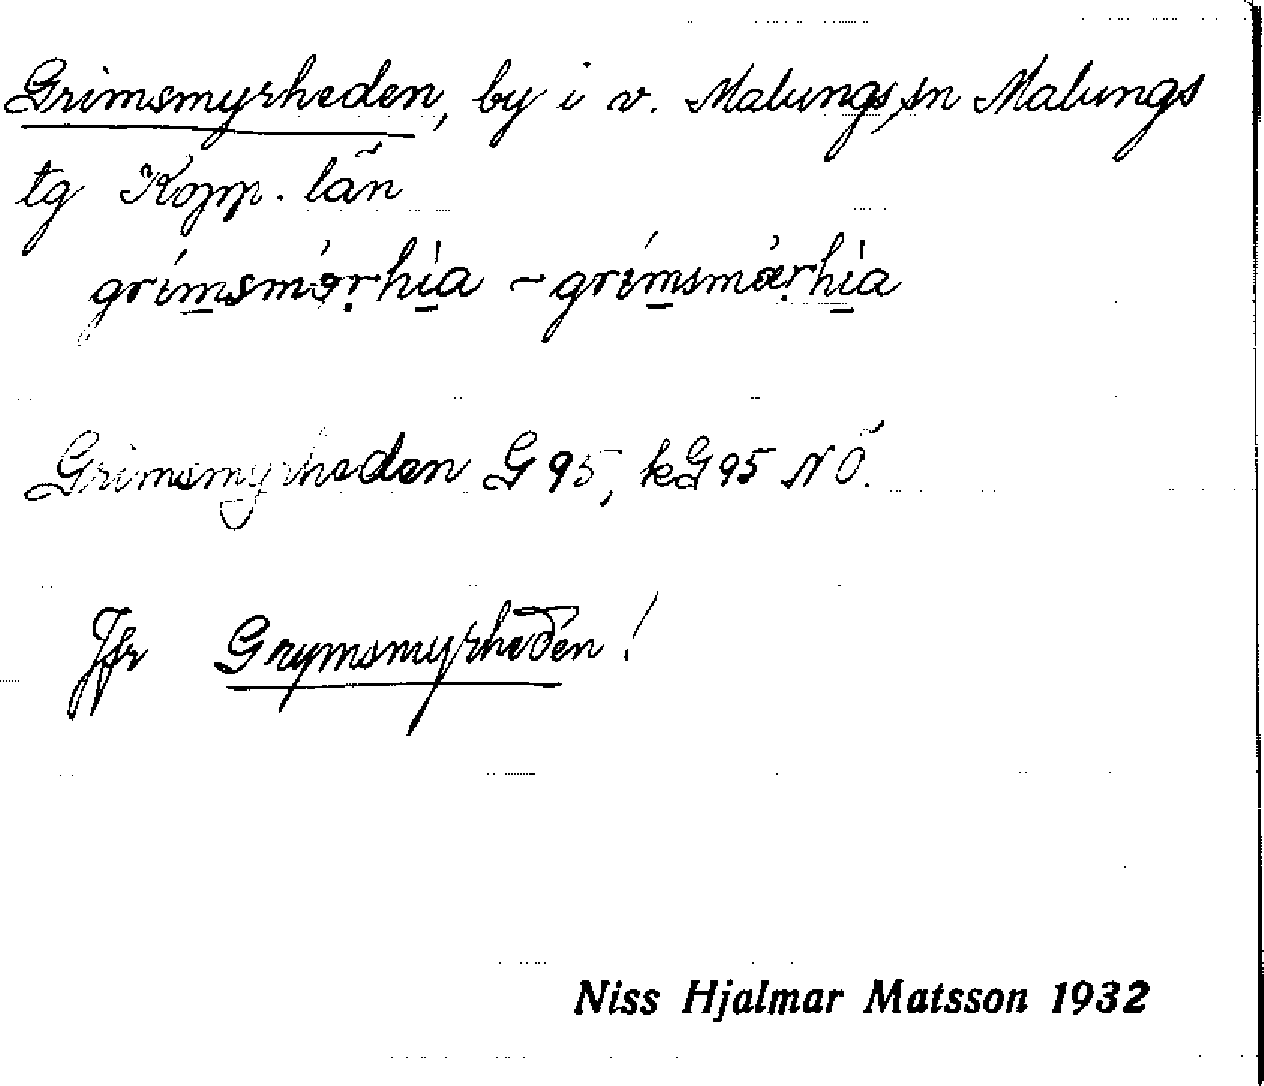 Grimsmyrheden, by i v. Malungs sn Malungs
tg Kopp. län
grimsmörhia ~ grimsmärhia
Grimsmyrheden G 95, kG 95 NÖ.
Jfr Grymsmyrheden!
Niss Hjalmar Matsson 1932